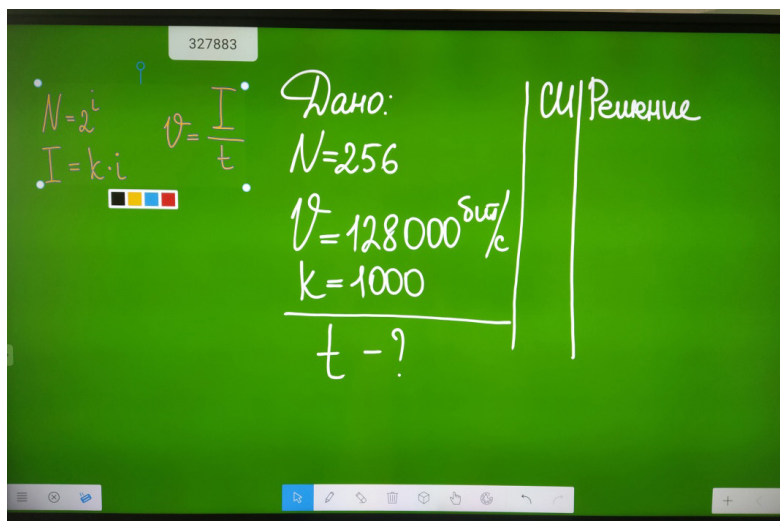 327883
N=2^i
I=k·i
v=I/t
Дано:
N=256
V=128000 бит/с
k=1000
t-?
СИ
Решение